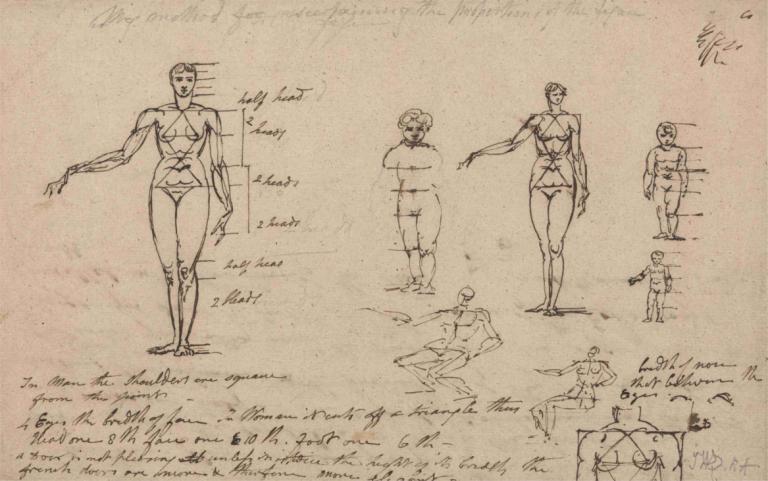 My method for ascertaining the proportions of the figure
half head
2 heads
2 heads
2 heads
half head
2 heads
In Man the shoulders are square
from the point
bredth of nose
that between the
Eyes
5 Eyes the bredth of face in Woman it cuts off a triangle thus
Head one 8th face one 10th. foot one 6th
a Door is not pleasing unless in twice the height of its bredth the
french doors are more & therefore more elegant